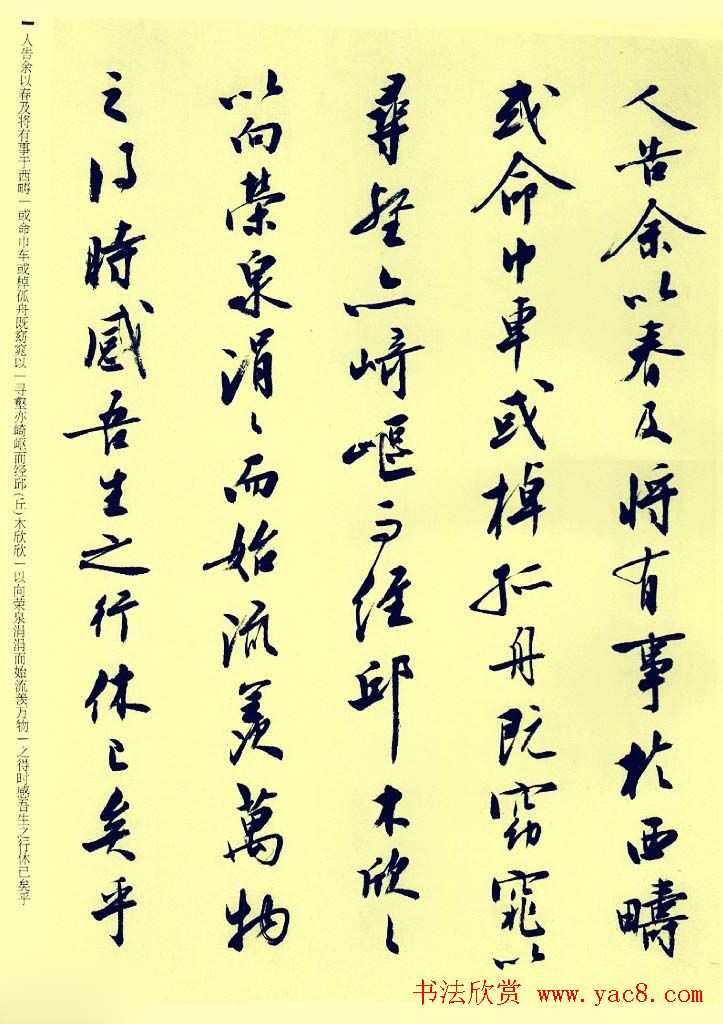 人告余以春及将有事於西疇
或命巾車或棹孤舟既窈窕以
尋壑亦崎嶇而經邱木欣〻
以向榮泉涓〻而始流羨萬物
之得時感吾生之行休已矣乎
人告余以春及将有事于西畴一或命巾车或棹孤舟既窈窕以一寻壑亦崎岖而经邱(丘)木欣欣一以向荣泉涓涓而始流羡万物一之得时感吾生之行休已矣乎
书法欣赏 www.yac8.com